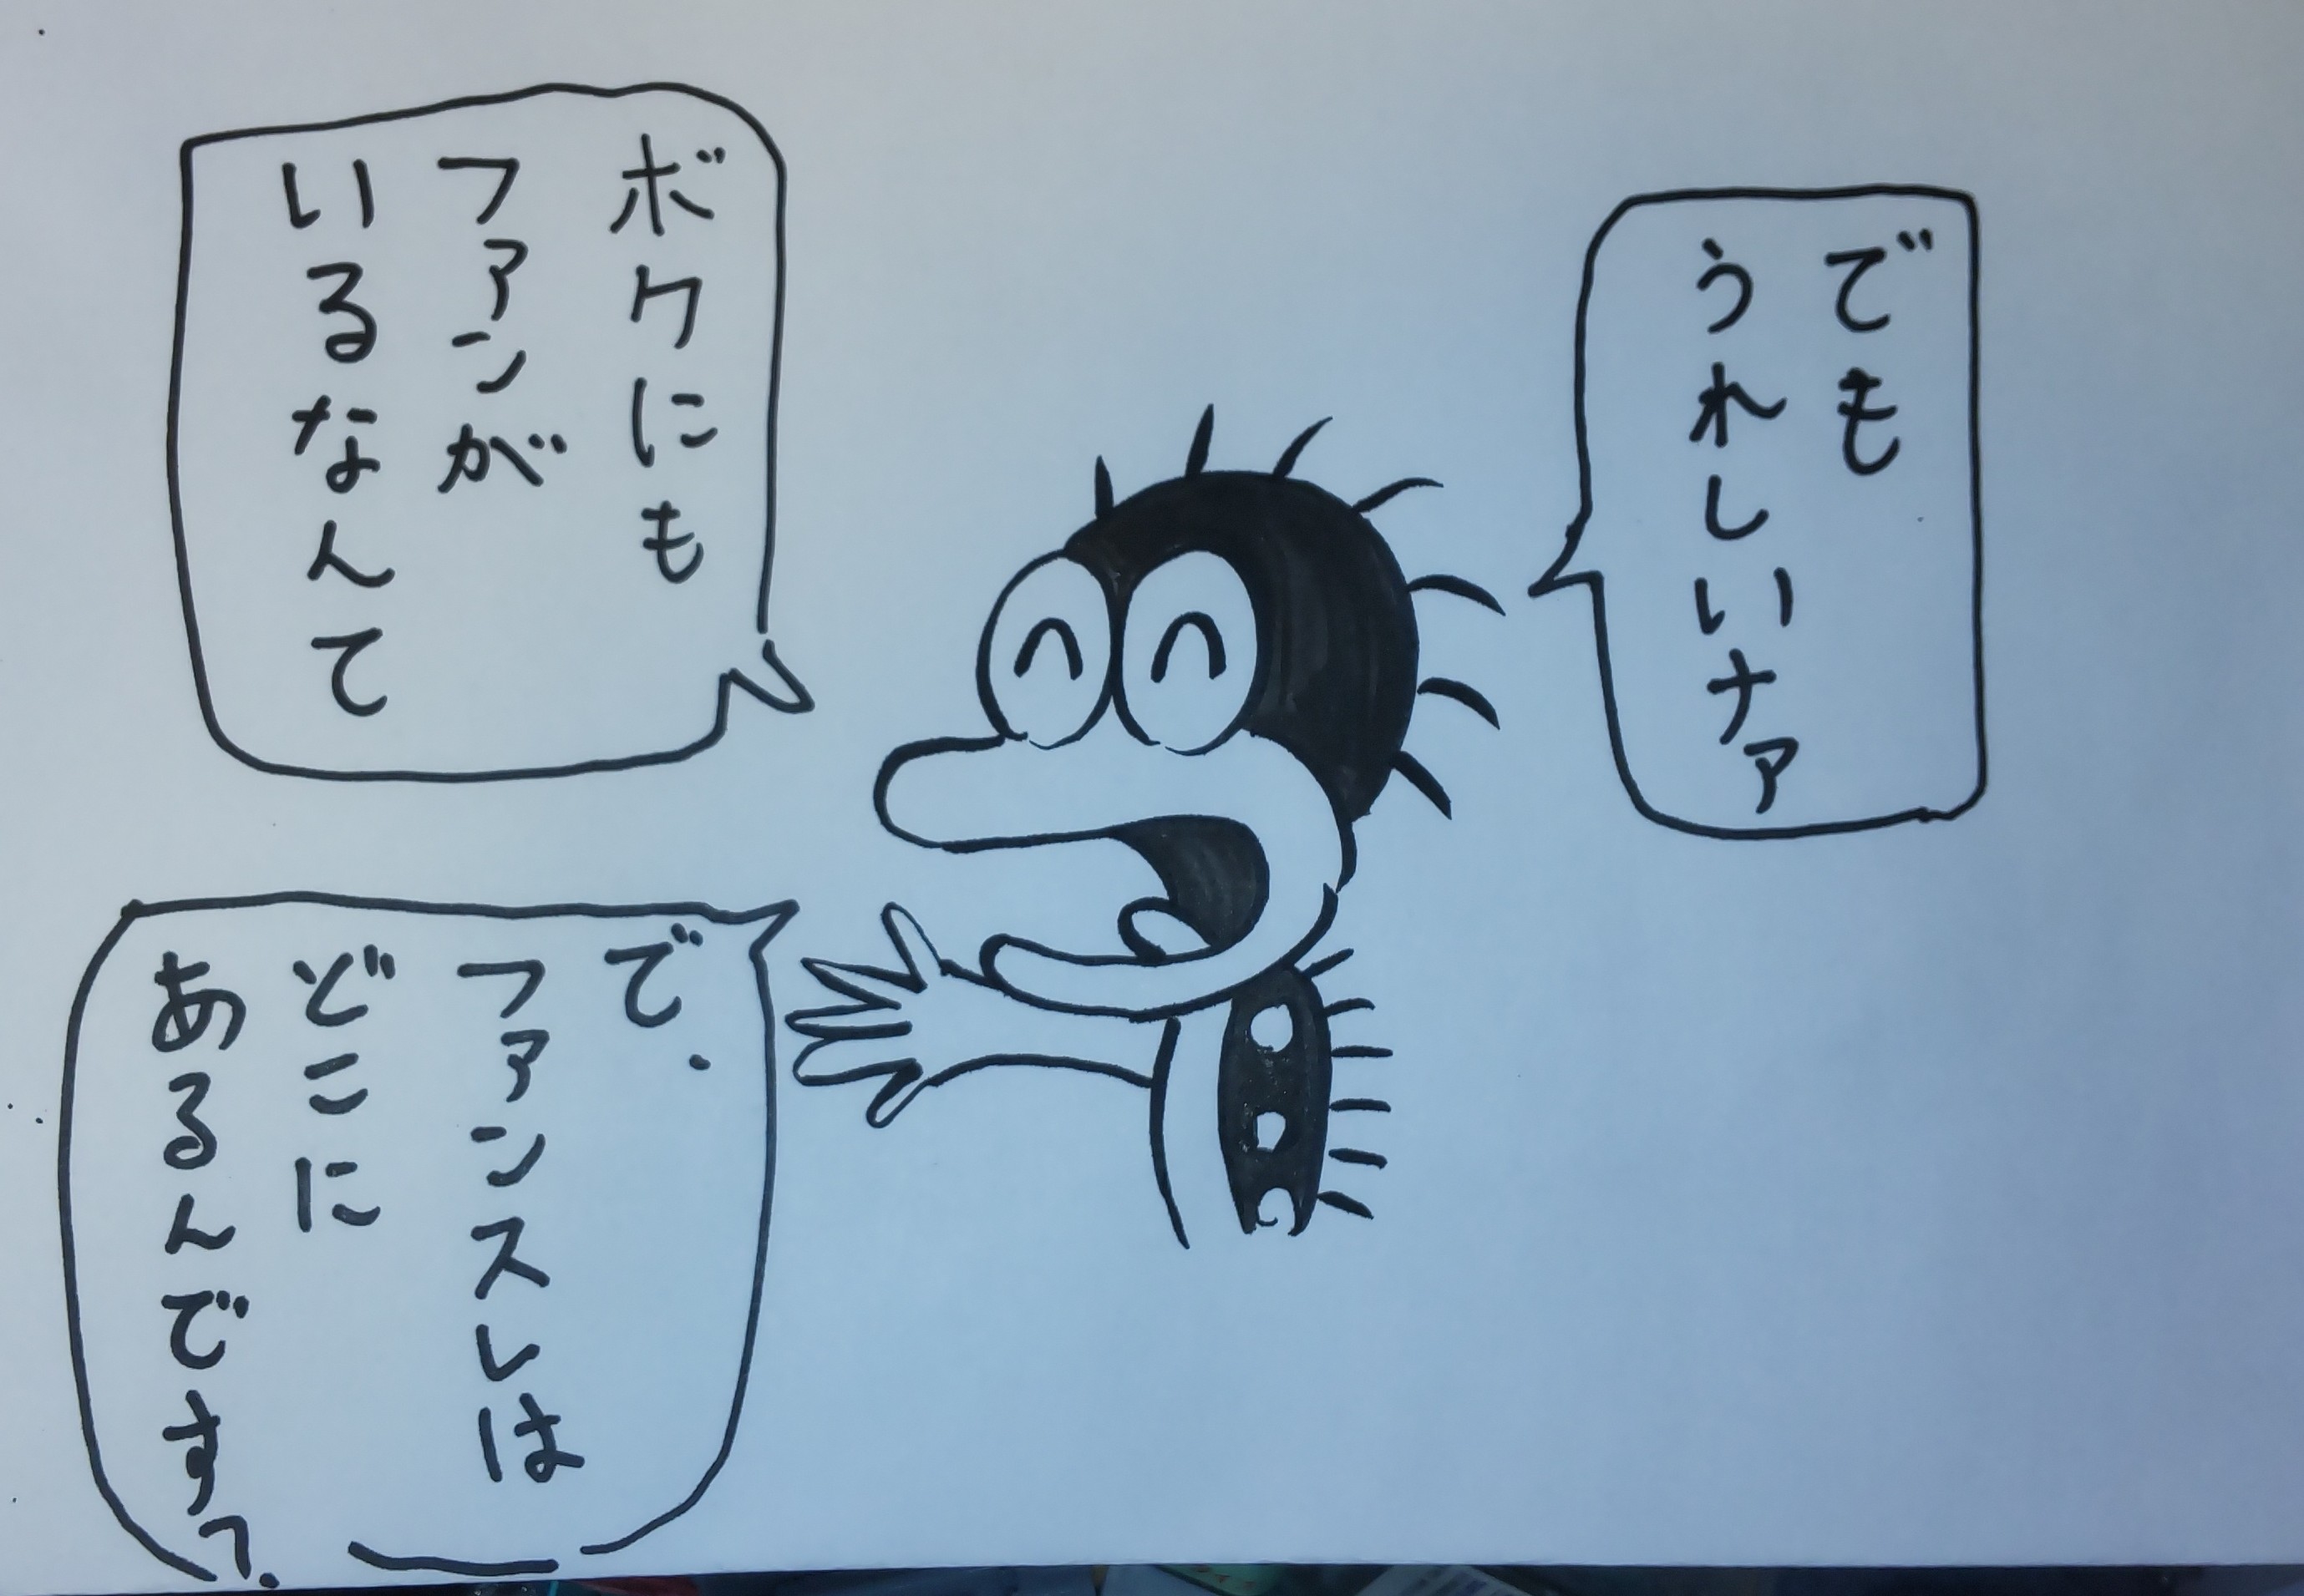 でも
うれしいナァ
ボクにも
ファンが
いるなんて
で.
ファンスレは
どこに
あるんです?